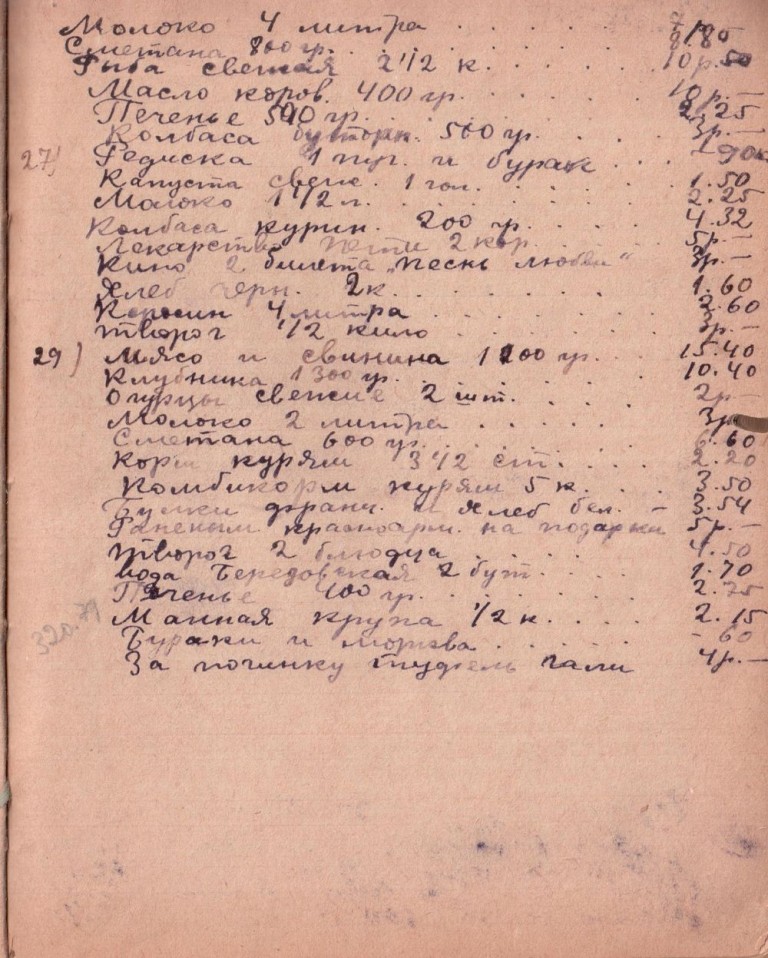 Молоко 4 литра . . . . . . 7
Сметана 800 гр. . . . . . 8/80
Рыба свежая 2 1/2 к. . . . . 10р.50
Масло коров. 400 гр. . . . . 10р.—
Печенье 500 гр. . . . . . 2/25
Колбаса бутерн. 500 гр. . . . 3р.—
27) Редиска 1 пуч. и бурак . . . -90к
Капуста свеж. 1 гол. . . . . 1.50
Молоко 1 1/2 л. . . . . . 2.25
Колбаса курин. 200 гр. . . . 4.32
Лекарство Пети 2 кор. . . . 5р.—
Кино 2 билета „песнь любви" 3р.—
Хлеб черн. 2к. . . . . . 1.60
Керосин 4 литра . . . . . 2.60
Творог 1/2 кило . . . . . 3р.—
29) Мясо и свинина 1200 гр. . . 15.40
Клубника 1300 гр. . . . . 10.40
Огурцы свежие 2 шт. . . . . 2р—
Молоко 2 литра . . . . . 3р
Сметана 600 гр. . . . . . 6.60
Корм курям 3 1/2 ст. . . . 2.20
Комбикорм курям 5 к. . . . 3.50
Булки франц. и хлеб бел. . — 3.54
Раненым красноарм. на подарки 5р.—
Творог 2 блюдца . . . . . 4.50
Вода Березовская 2 бут. . . . 1.70
Печенье 400 гр. . . . . . 2.75
Манная крупа 1/2 к. . . . . 2.15
320.71 Бураки и морква . . . . . -60
За починку туфель Гали 4р.—